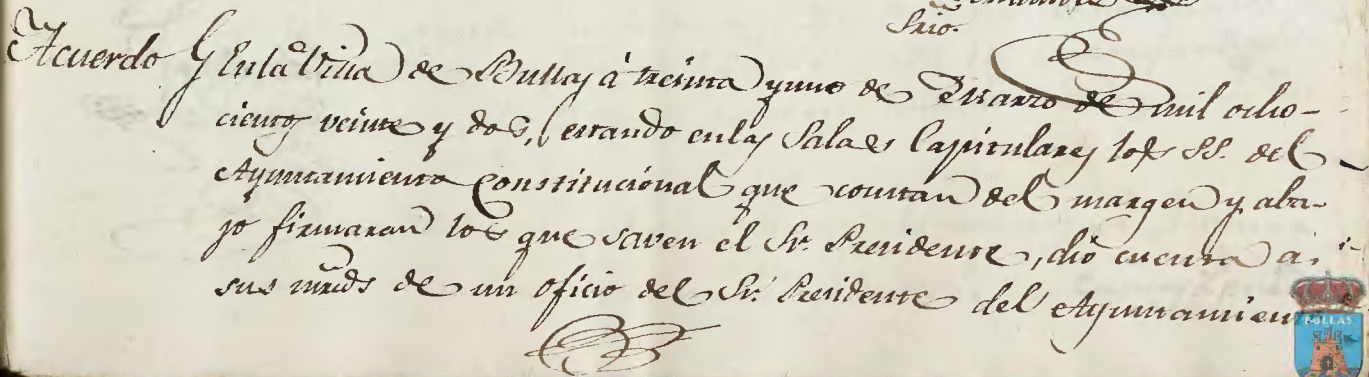 Srio.
Acuerdo
En la Villa de Bullas à treinta y uno de Marzo de mil ocho-
cientos veinte y dos, estando en las Salas Capitulares los SS. del
Ayuntamiento Constitucional que constan del margen y aba-
jo firmaran los que saven el Sr. Presidente, dio cuenta a
sus mrds de un oficio del Sr. Presidente del Ayuntamien
BULLAS